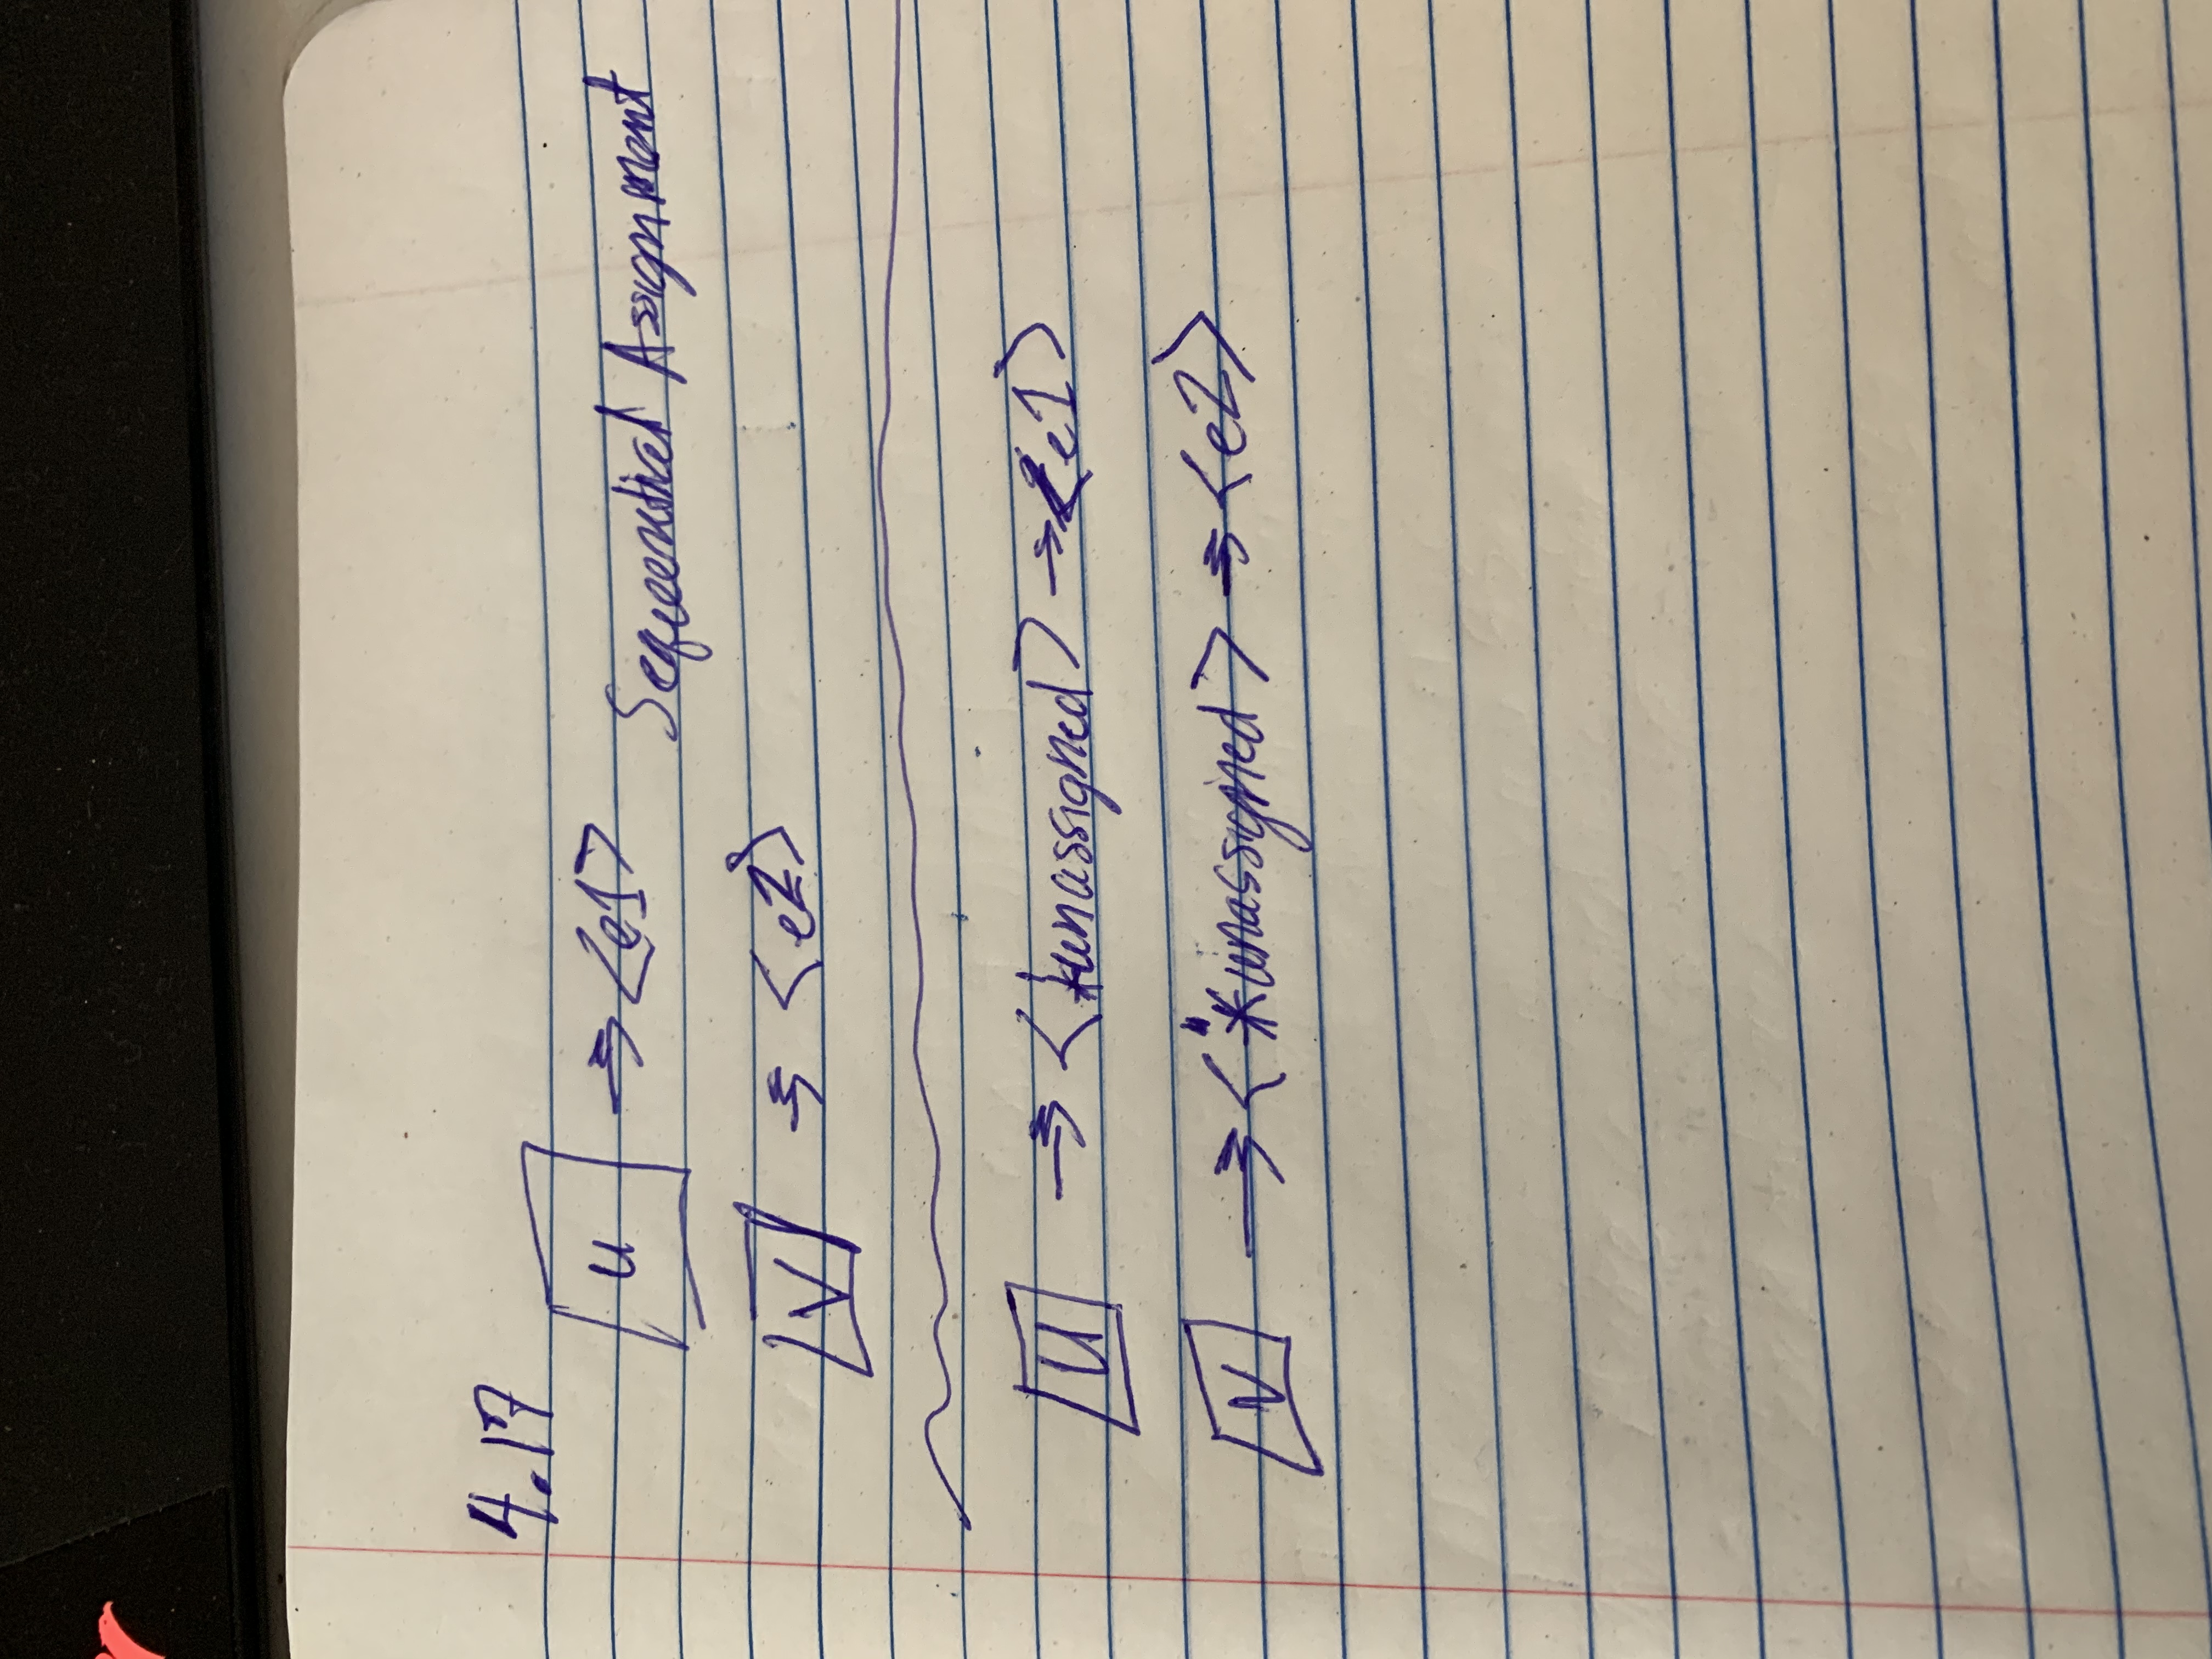 4.17
u → <e1> Sequential Assignment
v → <e2>
u → <*unassigned> → <e1>
v → <*unassigned> → <e2>